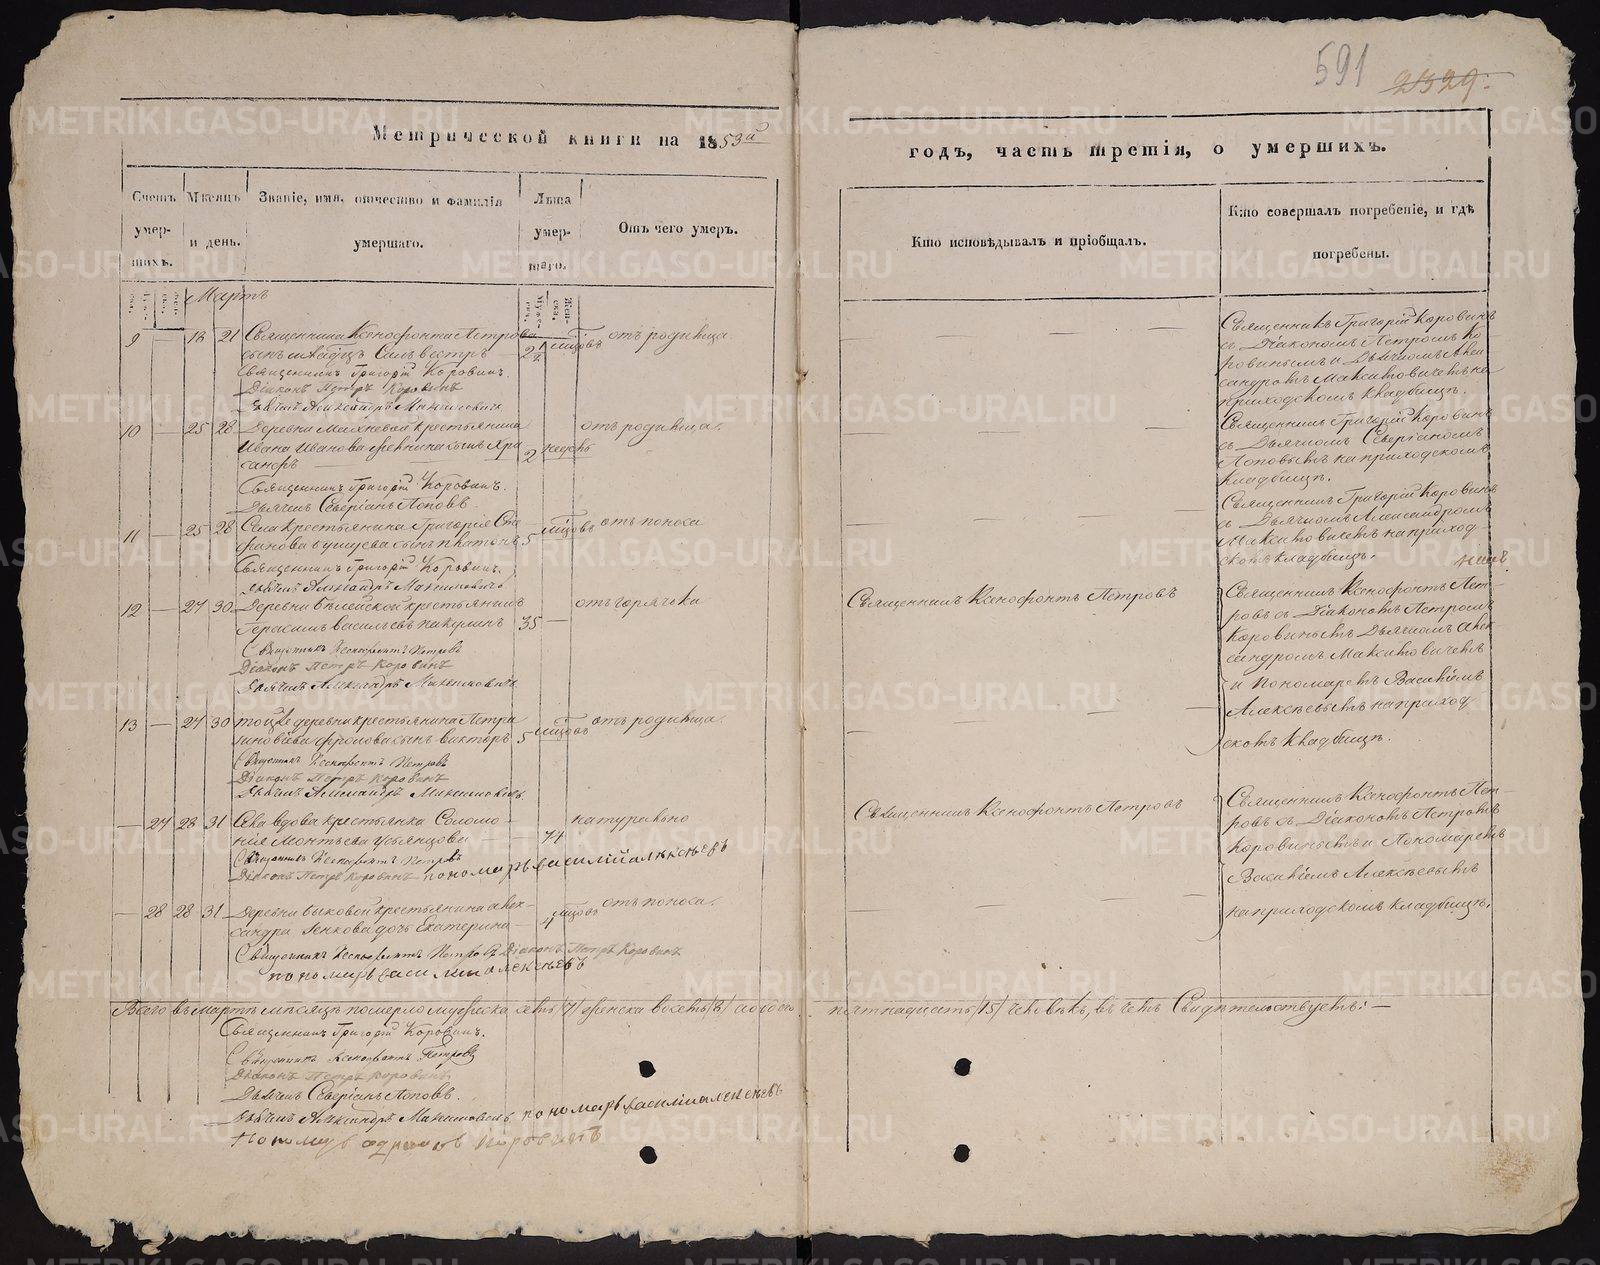 591 2329.
Метрической книги на 1853й
годъ, часть третія, о умершихъ.
Счетъ умер-шихъ.
Мѣсяцъ и день.
Званіе, имя, отчество и фамилія умершаго.
Лѣта умер-шаго.
Отъ чего умеръ.
Кто исповѣдывалъ и пріобщалъ.
Кто совершалъ погребеніе, и гдѣ погребены.
Мартъ
9 — 18 21 Священника Ксенофонта Петрова
сынъ Сильвестръ 2½ мѣсяцовъ отъ родимца
Священникъ Григорій Коровинъ.
Діаконъ Петръ Коровинъ
Дьячекъ Александръ Максимовичъ
Священникъ Григорій Коровинъ
съ Діакономъ Петромъ Ко-
ровинымъ и Дьячкомъ Алек-
сандромъ Максимовичемъ на
приходскомъ кладбищѣ.
10 — 25 28 Деревни крестьянина
Ивана Иванова сынъ
2 недель отъ родимца.
Священникъ Григорій Коровинъ.
Дьячекъ Северіанъ Поповъ
Священникъ Григорій Коровинъ
съ Дьячкомъ Северіаномъ
Поповымъ на приходскомъ
кладбищѣ.
11 — 25 28 Села крестьянина Григорья Сте-
фанова сынъ Платонъ 5 мѣсяцовъ отъ поноса
Священникъ Григорій Коровинъ.
Дьячекъ Александръ Максимовичъ
Священникъ Григорій Коровинъ
съ Дьячкомъ Александромъ
Максимовичемъ на приход-
скомъ кладбищѣ.
12 — 27 30 Деревни Бѣлейской крестьянинъ
Герасимъ Васильевъ Пакулинъ 35 — отъ горячки
Священникъ Ксенофонтъ Петровъ
Діаконъ Петръ Коровинъ
Дьячекъ Александръ Максимовичъ
Священникъ Ксенофонтъ Петровъ
Священникъ Ксенофонтъ Пет-
ровъ съ Діакономъ Петромъ
Коровинымъ Дьячкомъ Алек-
сандромъ Максимовичемъ
и Пономаремъ Василіемъ
Алексѣевымъ на приход
скомъ кладбищѣ.
13 — 27 30 той же деревни крестьянина Петра
Зиновьева Фролова сынъ Викторъ 5 мѣсяцовъ отъ родимца.
Священникъ Ксенофонтъ Петровъ
Діаконъ Петръ Коровинъ
Дьячекъ Александръ Максимовичъ
— 27 28 31 Села вдова крестьянка Соломо-
нія Монтьева Усьянцова 74 натурально
Священникъ Ксенофонтъ Петровъ
Діаконъ Петръ Коровинъ пономарь василій алексѣевъ
Священникъ Ксенофонтъ Петровъ
Священникъ Ксенофонтъ Пет-
ровъ съ Діакономъ Петромъ
Коровинымъ и Пономаремъ
Василіемъ Алексѣевымъ
на приходскомъ кладбищѣ.
— 28 28 31 Деревни Быковой крестьянина Алек-
сандра Генкова дочь Екатерина 4 мѣсяцовъ отъ поноса.
Священникъ Ксенофонтъ Петровъ Діаконъ Петръ Коровинъ
пономарь василій алексѣевъ
Всего въ Мартѣ мѣсяцѣ померло мужеска семь /7/ женска восемь /8/ а обоего пятнадцать /15/ человѣкъ, въ чемъ Свидѣтельствуемъ: —
Священникъ Григорій Коровинъ.
Священникъ Ксенофонтъ Петровъ
Діаконъ Петръ Коровинъ
Дьячекъ Северіанъ Поповъ.
Дьячекъ Александръ Максимовичъ пономарь василій алексѣевъ
Пономарь Коровинъ
METRIKI.GASO-URAL.RU